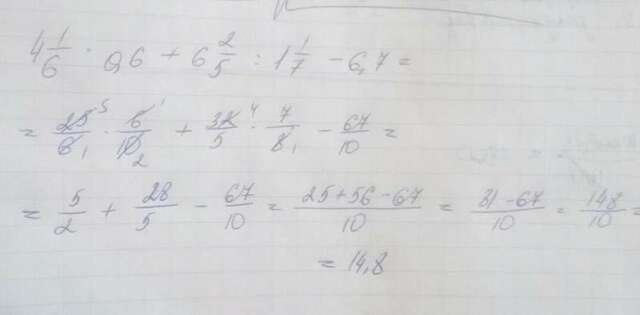 4 1/6 · 0,6 + 6 2/5 : 1 1/7 - 6,7 =
= 25/6 · 6/10 + 32/5 · 7/8 - 67/10 =
= 5/2 + 28/5 - 67/10 = 25+56-67/10 = 81-67/10 = 148/10 =
= 14,8